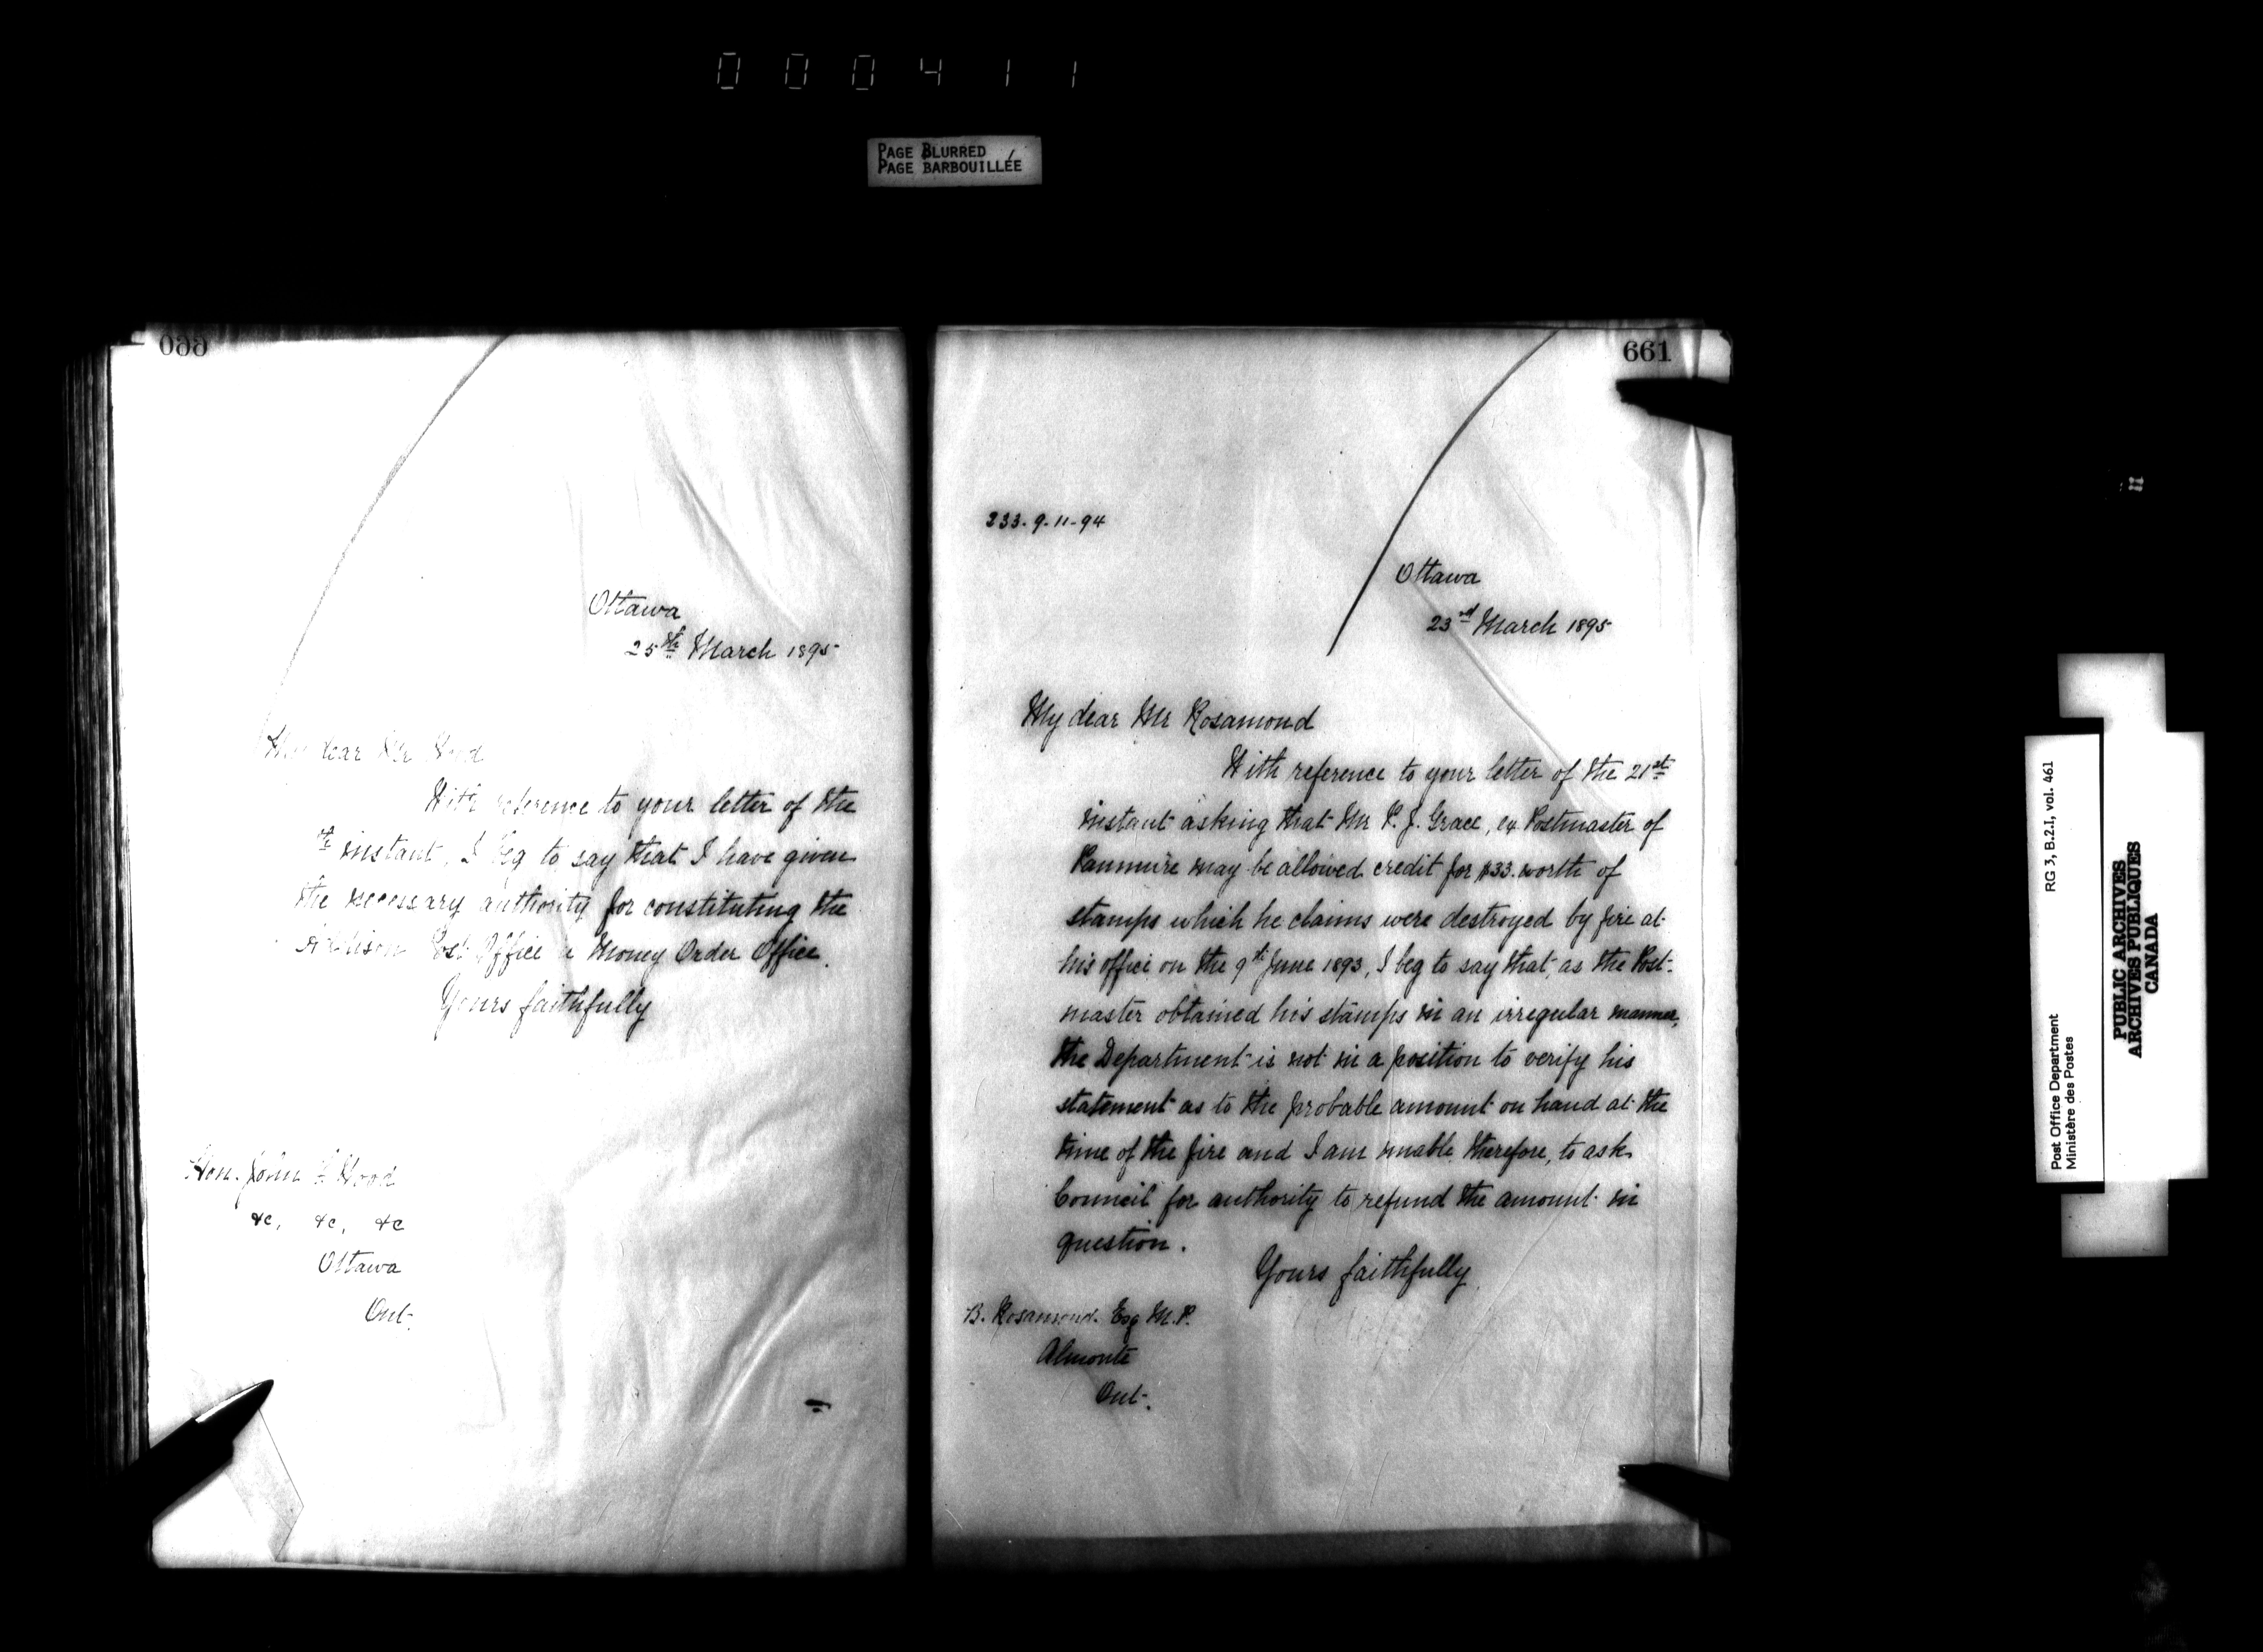 000411
PAGE BLURRED
PAGE BARBOUILLÉE
660
Ottawa
25th March 1895
My dear Mr Wood
With reference to your letter of the
instant, I beg to say that I have given
the necessary authority for constituting the
Post Office a Money Order Office.
Yours faithfully
Hon. John F. Wood
&c, &c, &c
Ottawa
Ont.
661
233-9-11-94
Ottawa
23rd March 1895
My dear Mr Rosamond
With reference to your letter of the 21st
instant asking that Mr P. J. Grace, ex Postmaster of
Panmure may be allowed credit for $33. worth of
stamps which he claims were destroyed by fire at
his office on the 9th June 1893, I beg to say that, as the Post-
master obtained his stamps in an irregular manner,
the Department is not in a position to verify his
statement as to the probable amount on hand at the
time of the fire and I am unable, therefore, to ask
Council for authority to refund the amount in
question.
Yours faithfully
B. Rosamond. Esq M.P.
Almonte
Ont.
Post Office Department
Ministère des Postes
RG 3, B.2.I, vol. 461
PUBLIC ARCHIVES
ARCHIVES PUBLIQUES
CANADA